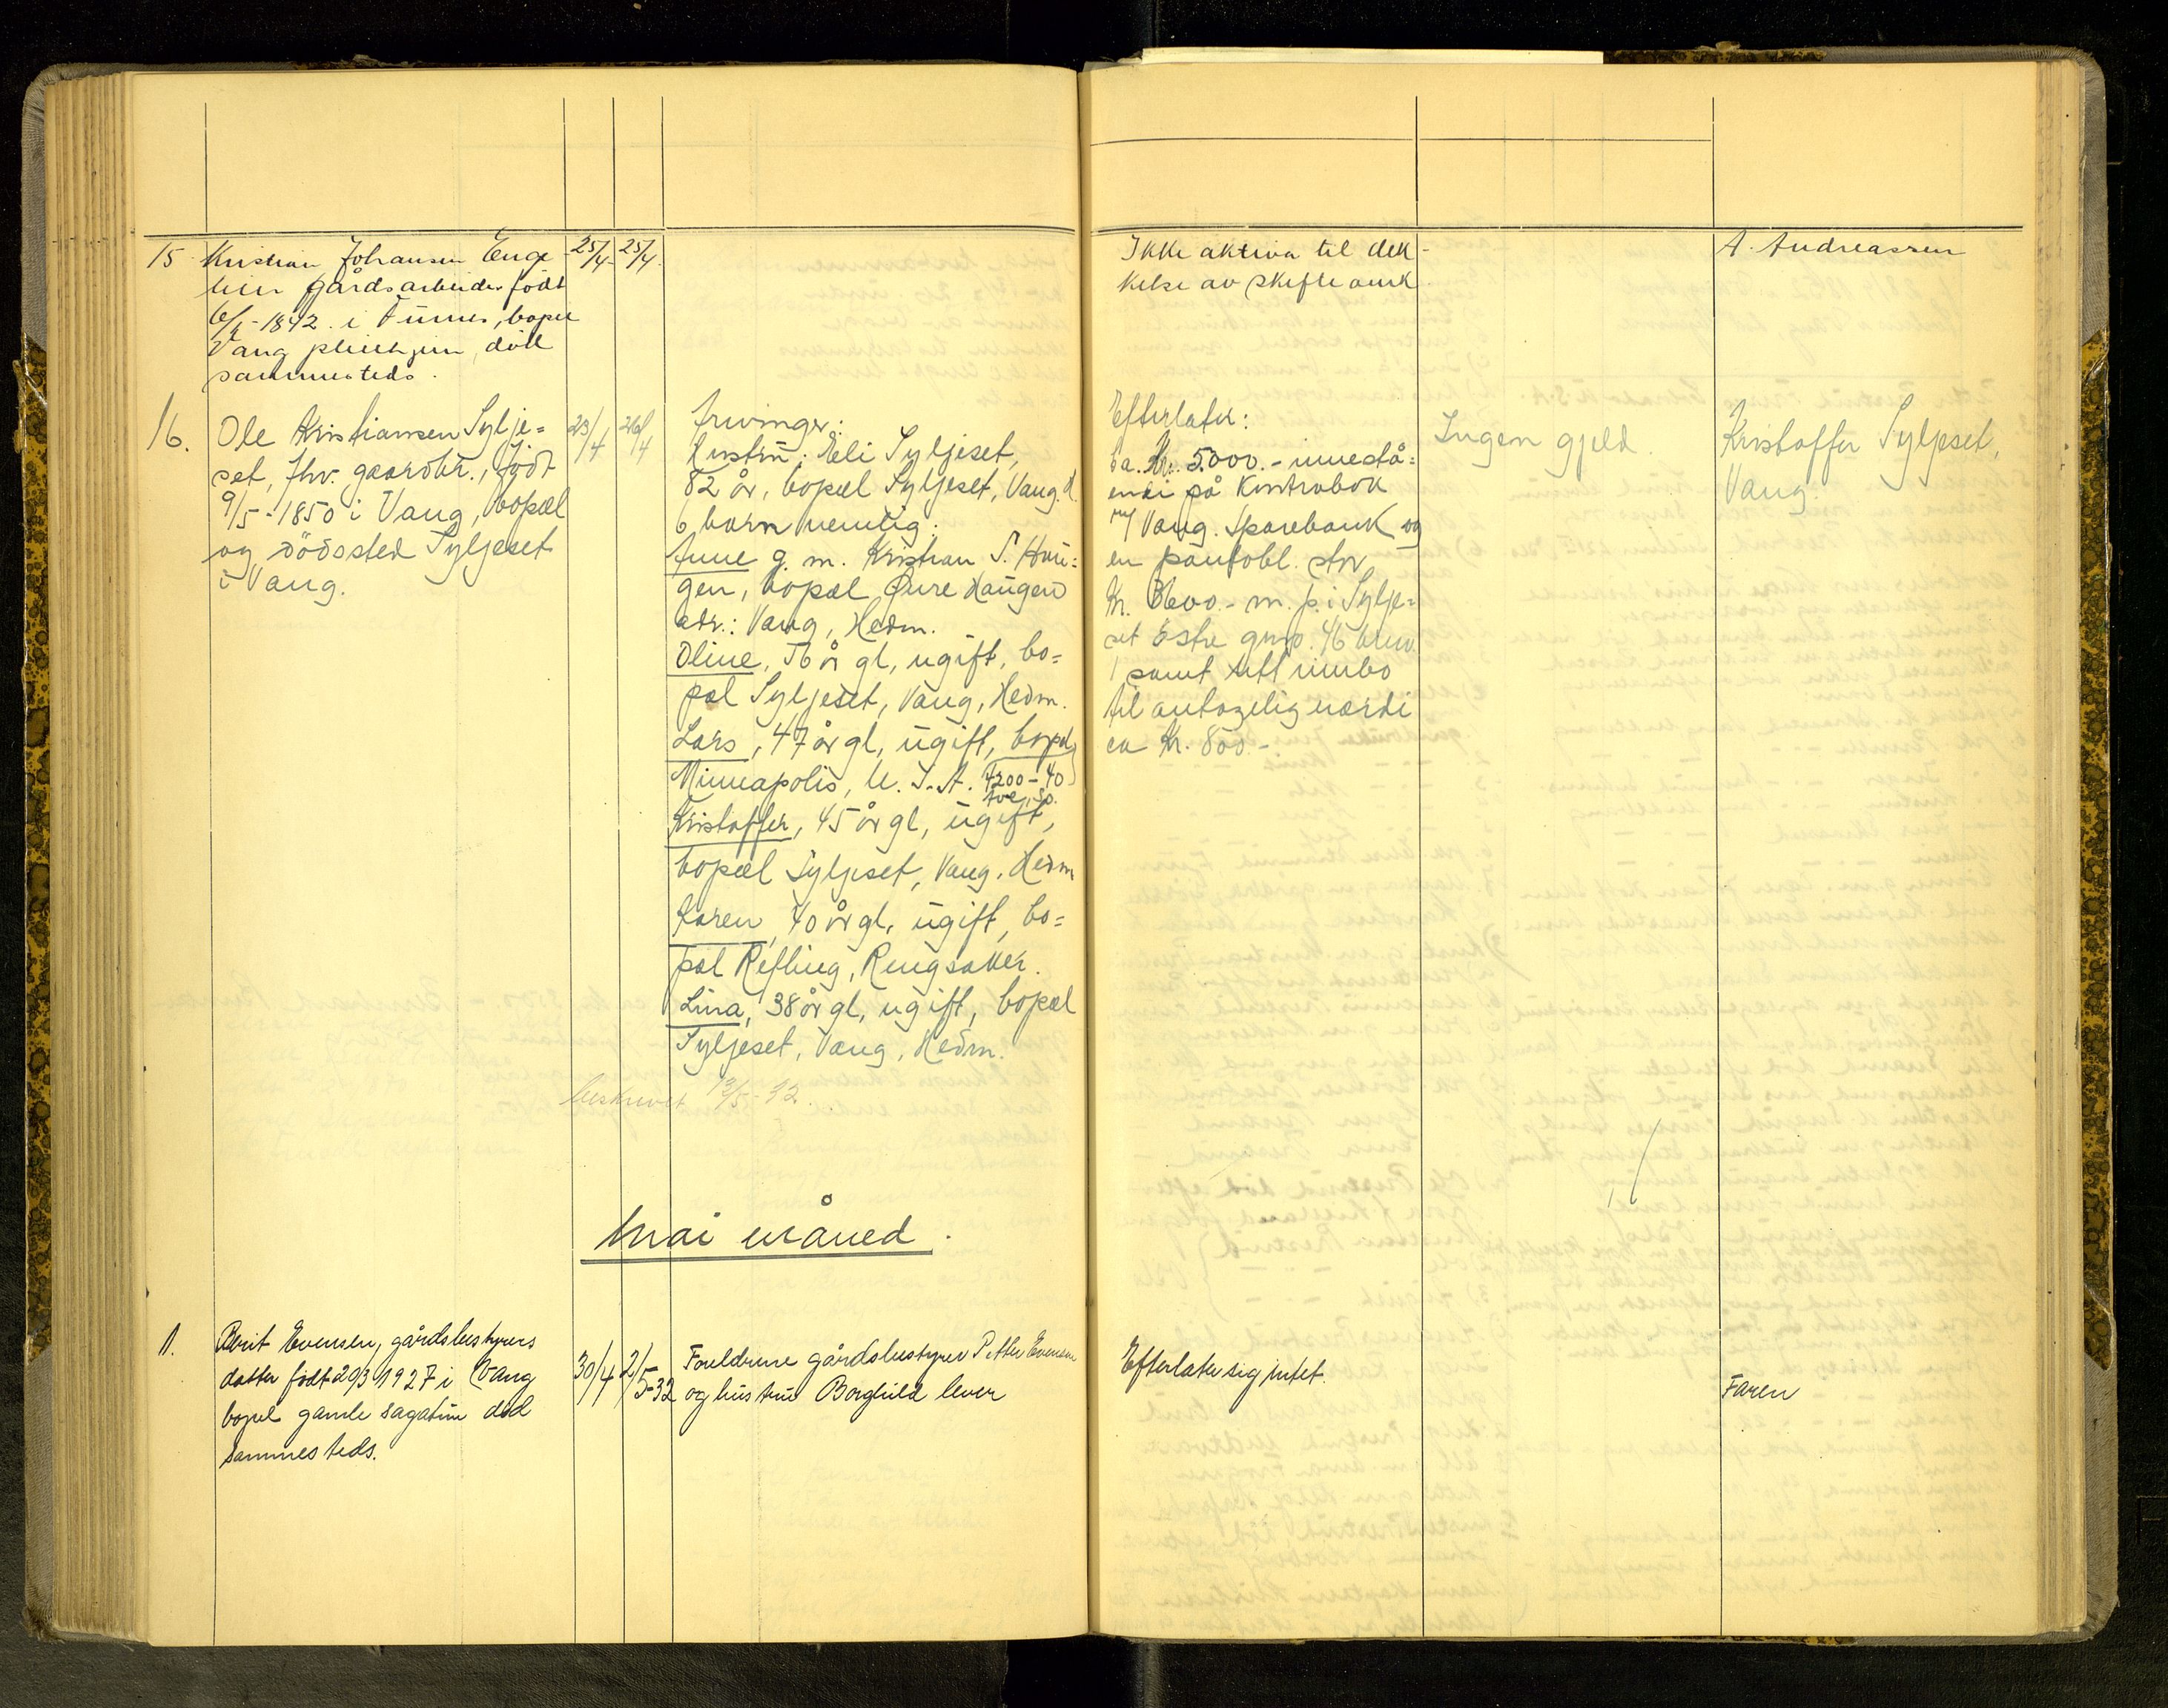 15 Kristian Johansen Enge- 25/4 25/4
hein gårdsarbeider født
6/4-1842 i Furnes, bopel
Vang pleiehjem, död
sammesteds.
Ikke aktiva til dek-
kelse av skifte omk.
A. Andreassen
16. Ole Kristiansen Sylje= 23/4 26/4
set, fhv. gaardbr., født
9/5-1850 i Vang, bopæl
og dödssted Syljeset
i Vang.
Arvinger:
Hustru: Eli Syljeset,
82 år, bopæl Syljeset, Vang. H.
6 barn nemlig:
Anne g. m. Kristian S. Hau=
gen, bopæl Øvre Haugen
adr.: Vang, Hedm.
Oline, 56 år gl, ugift, bo=
pæl Syljeset, Vang, Hedm.
Lars, 47 år gl, ugift, bopæl
Minneapolis, U. S. A. 4200-40
Ave. So.
Kristoffer, 45 år gl, ugift,
bopæl Syljeset, Vang, Hedm
Karen, 40 år gl, ugift, bo=
pæl Refling, Ringsaker.
Lina, 38 år gl, ugift, bopæl
Syljeset, Vang, Hedm.
beskrevet 13/5-32.
Efterlater:
ca. Kr. 5000.- innestå=
ende på Kontrabok
m/ Vang Sparebank og
en pantobl. stor
Kr. 3600.- m. p. i Sylje=
set östre gno. 46 bno.
1 samt litt innbo
til antagelig værdi
ca Kr. 800.-
Ingen gjeld.
Kristoffer Syljeset,
Vang.
Mai måned.
1. Berit Evensen, gårdsbestyrers
datter født 20/3 1927 i Vang
bopel gamle Sagatun død
sammesteds.
30/4 2/5-32
Foreldrene gårdsbestyrer Petter Evensen
og hustru Borghild lever
Efterlater sig intet.
Faren